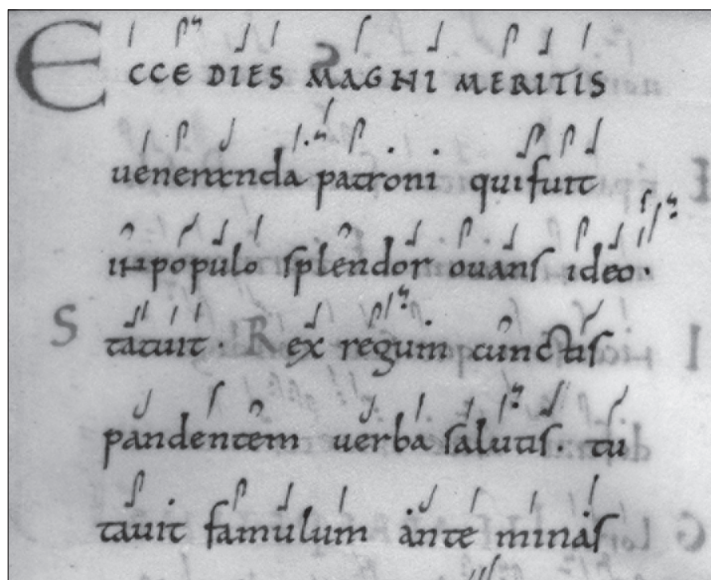 ECCE DIES MAGNI MERITIS
ueneranda patroni qui fuit
in populo splendor ouans ideo·
S tatuit · Rex regum cunctis
pandentem uerba salutis · tu
tauit famulum ante minas